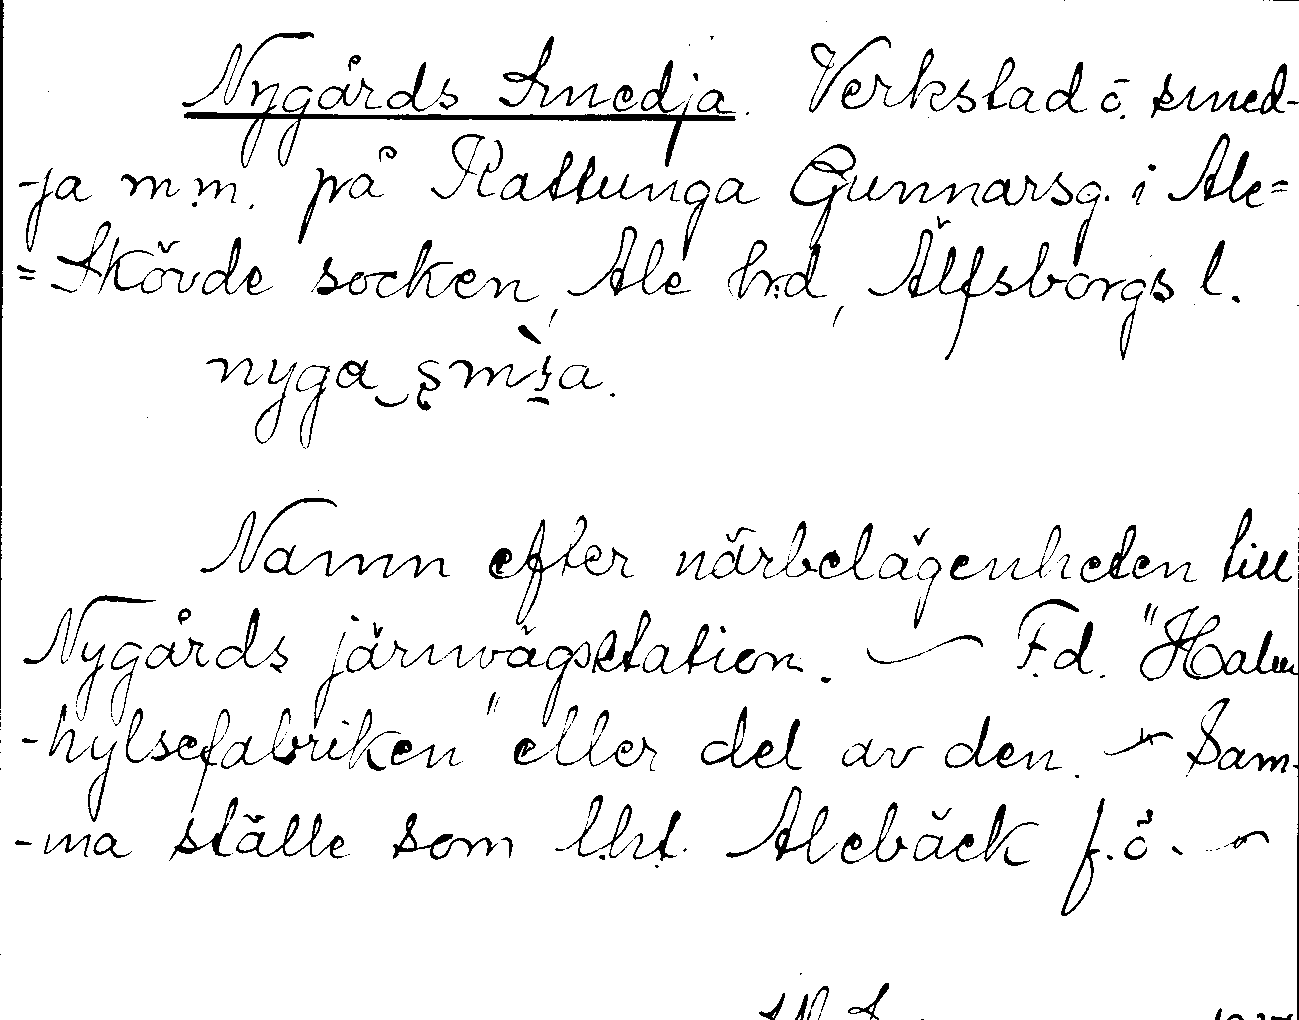 Nygårds Smedja. Verkstad o. smed-
-ja m.m. på Rattunga Gunnarsg. i Ale=
=Skövde socken, Ale hrd, Älfsborgs l.
nyga
Namn efter närbelägenheten till
Nygårds järnvägsstation. — F.d. "Halm
-hylsefabriken" eller del av den. — Sam-
-ma ställe som lht. Alebäck f.ö. —